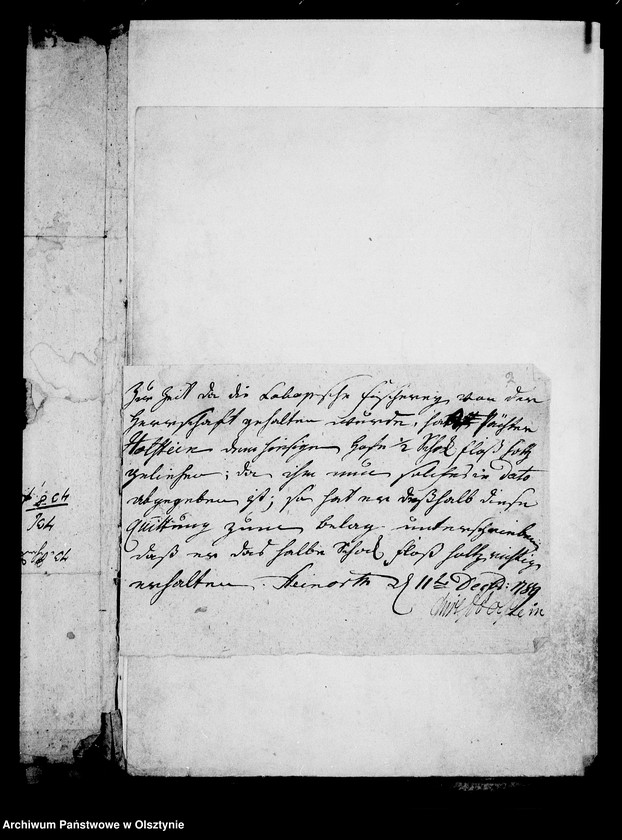 2
Zur Zeit da die Labapsche Fischerey von der
Herrschaft gehalten wurde, hat Pächter
Holstein dem hiesigen Hofe 1/2 Schok Floß holtz
geliehen; da ihm nun solches in dato
abgegeben ist; so hat er deßhalb diese
Quittung zum belag unterschrieben,
daß er das halbe Schock Floß holtz richtig
erhalten. Steinorth d 11ten Decbr: 1789
Archiwum Państwowe w Olsztynie